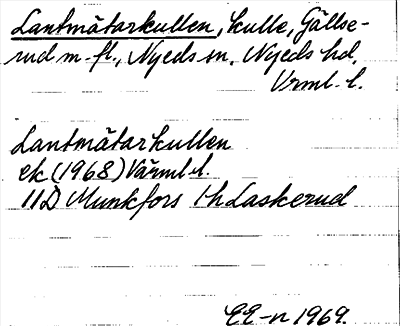 Lantmätarkullen, kulle, Gällse-
rud m. fl., Nyeds sn, Nyeds hd,
Vrml. l.
Lantmätarkullen
ek (1968) Värml. l.
11D Munkfors 1h Laskerud
EE-n 1969.